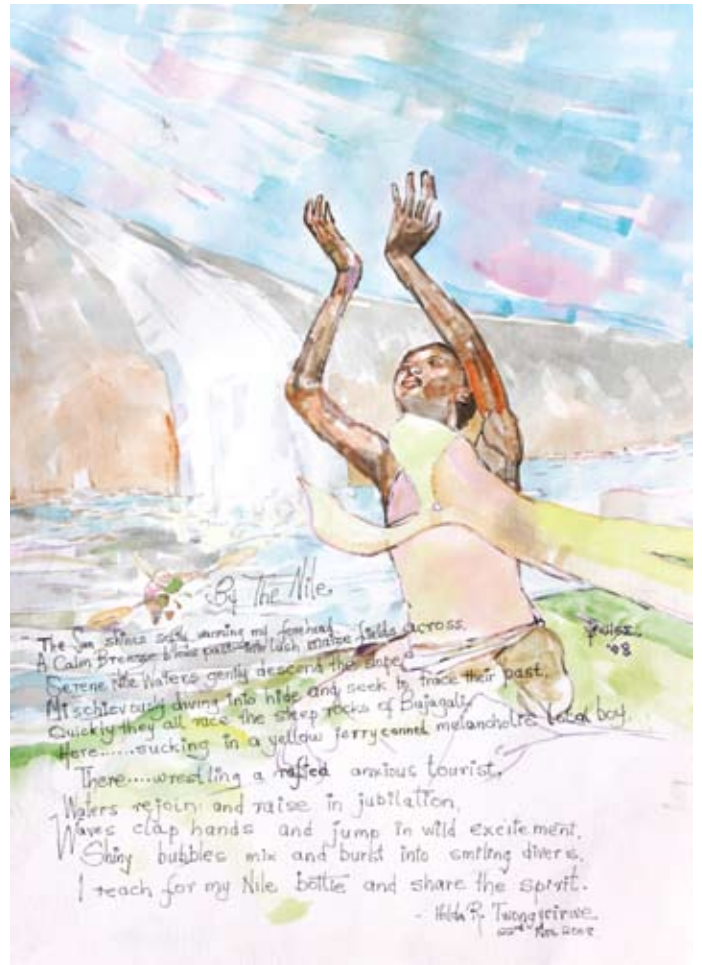 By The Nile
The Sun shines softly warming my forehead
A Calm Breeze blows past into lush maize fields across.
Serene Nile Waters gently descend the slope
Mischievously diving into hide and seek to trace their past.
Quickly they all race the steep rocks of Bujagali.
Here......sucking in a yellow jerrycanned melancholic local boy.
There....wrestling a rafted anxious tourist.
Waters rejoin and raise in jubilation,
Waves clap hands and jump in wild excitement.
Shiny bubbles mix and burst into smiling divers.
I reach for my Nile bottle and share the spirit.
- Hilda R. Twongyeirwe
22nd 2008
'08